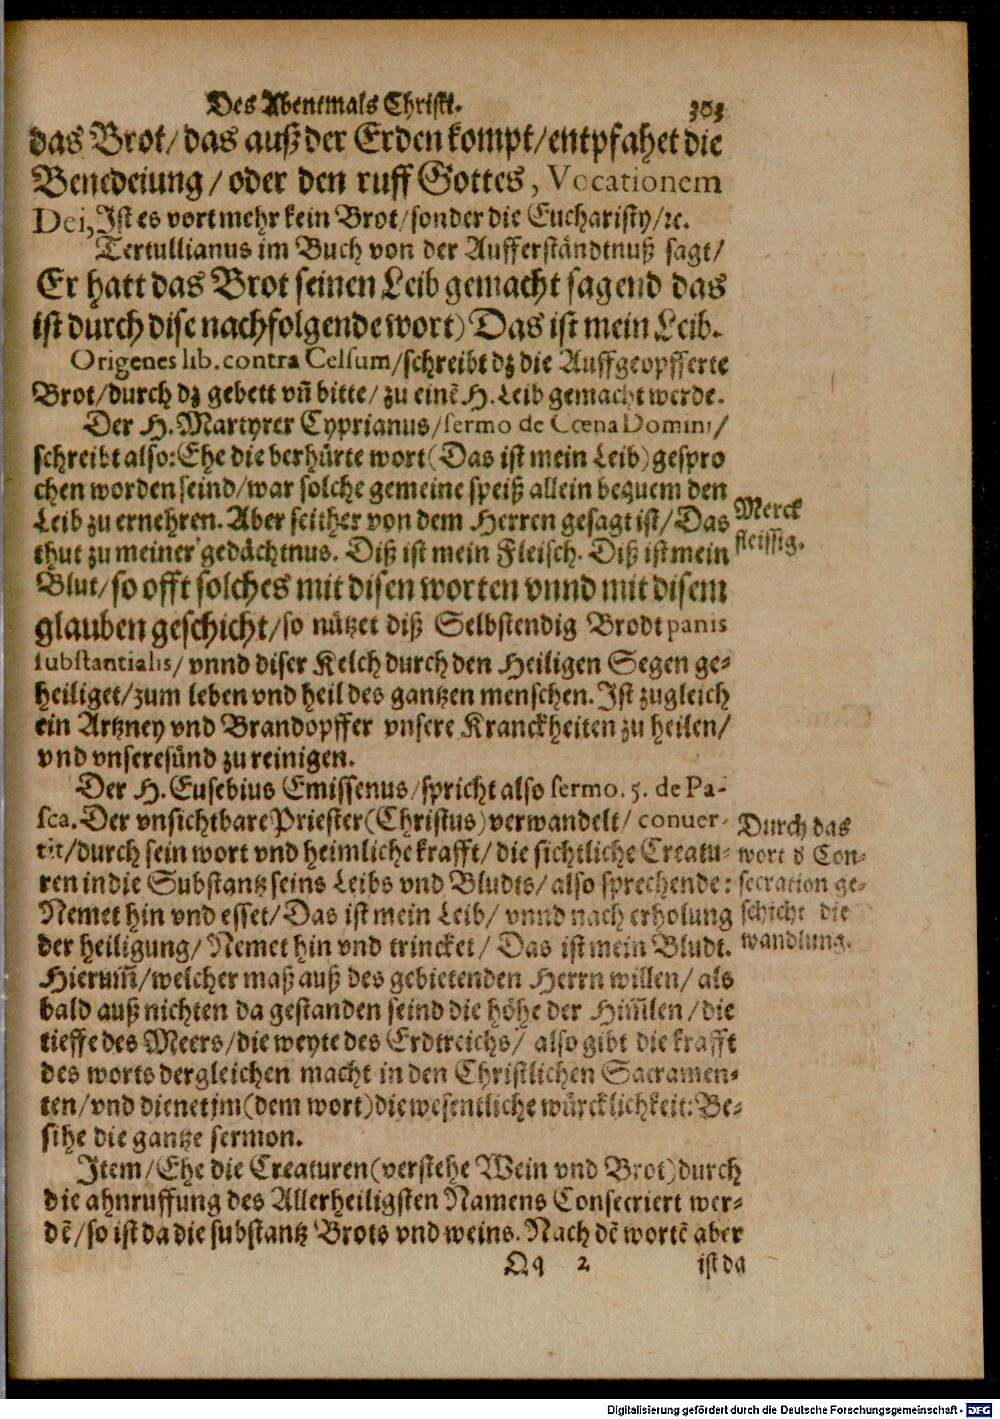 Des Abentmals Christi. 303
das Brot/ das auß der Erden kompt/ entpfahet die
Benedeiung/ oder den ruff Gottes, Vocationem
Dei, Ist es vort mehr kein Brot/ sonder die Eucharisty/ ꝛc.
Tertullianus im Buch von der Aufferständtnuß sagt/
Er hatt das Brot seinen Leib gemacht sagend das
ist durch dise nachfolgende wort) Das ist mein Leib.
Origenes lib. contra Celsum/ schreibt dz die Auffgeopfferte
Brot/ durch dz gebett vñ bitte/ zu einẽ H. Leib gemacht werde.
Der H. Martyrer Cyprianus/ sermo de Cœna Domini/
schreibt also: Ehe die berhürte wort (Das ist mein Leib) gespro
chen worden seind/ war solche gemeine speiß allein bequem den
Leib zu ernehren. Aber seither von dem Herren gesagt ist/ Das
thut zu meiner gedächtnus. Diß ist mein Fleisch. Diß ist mein
Blut/ so offt solches mit disen worten vnnd mit disem
glauben geschicht/ so nützet diß Selbstendig Brodt panis
substantialis/ vnnd diser Kelch durch den Heiligen Segen ge-
heiliget/ zum leben vnd heil des gantzen menschen. Ist zugleich
ein Artzney vnd Brandopffer vnsere Kranckheiten zu heilen/
vnd vnsere sünd zu reinigen.
Merck
fleissig.
Der H. Eusebius Emissenus/ spricht also sermo. 5. de Pa-
sca. Der vnsichtbare Priester (Christus) verwandelt/ conuer-
tit/ durch sein wort vnd heimliche krafft/ die sichtliche Creatu-
ren in die Substantz seins Leibs vnd Bludts/ also sprechende:
Nemet hin vnd esset/ Das ist mein Leib/ vnnd nach erholung
der heiligung/ Nemet hin vnd trincket/ Das ist mein Bludt.
Hierum̃/ welcher maß auß des gebietenden Herrn willen/ als
bald auß nichten da gestanden seind die höhe der Him̃len/ die
tieffe des Meers/ die weyte des Erdtreichs/ also gibt die krafft
des worts dergleichen macht in den Christlichen Sacramen-
ten/ vnd dienet jm (dem wort) die wesentliche würcklichkeit: Be-
sihe die gantze sermon.
Durch das
wort d Con-
secration ge-
schicht die
wandlung.
Item/ Ehe die Creaturen (verstehe Wein vnd Brot) durch
die ahnruffung des Allerheiligsten Namens Consecriert wer-
dẽ/ so ist da die substantz Brots vnd weins. Nach dẽ wortẽ aber
Qq 2 ist da
Digitalisierung gefördert durch die Deutsche Forschungsgemeinschaft - DFG